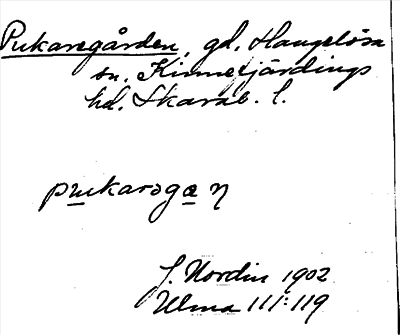 Pukaregården, gd. Haugelösa
sn. Kinnefjärdings
hd. Skarab. l.
pukarəgæ η
J. Nordin 1902
Ulma 111:119